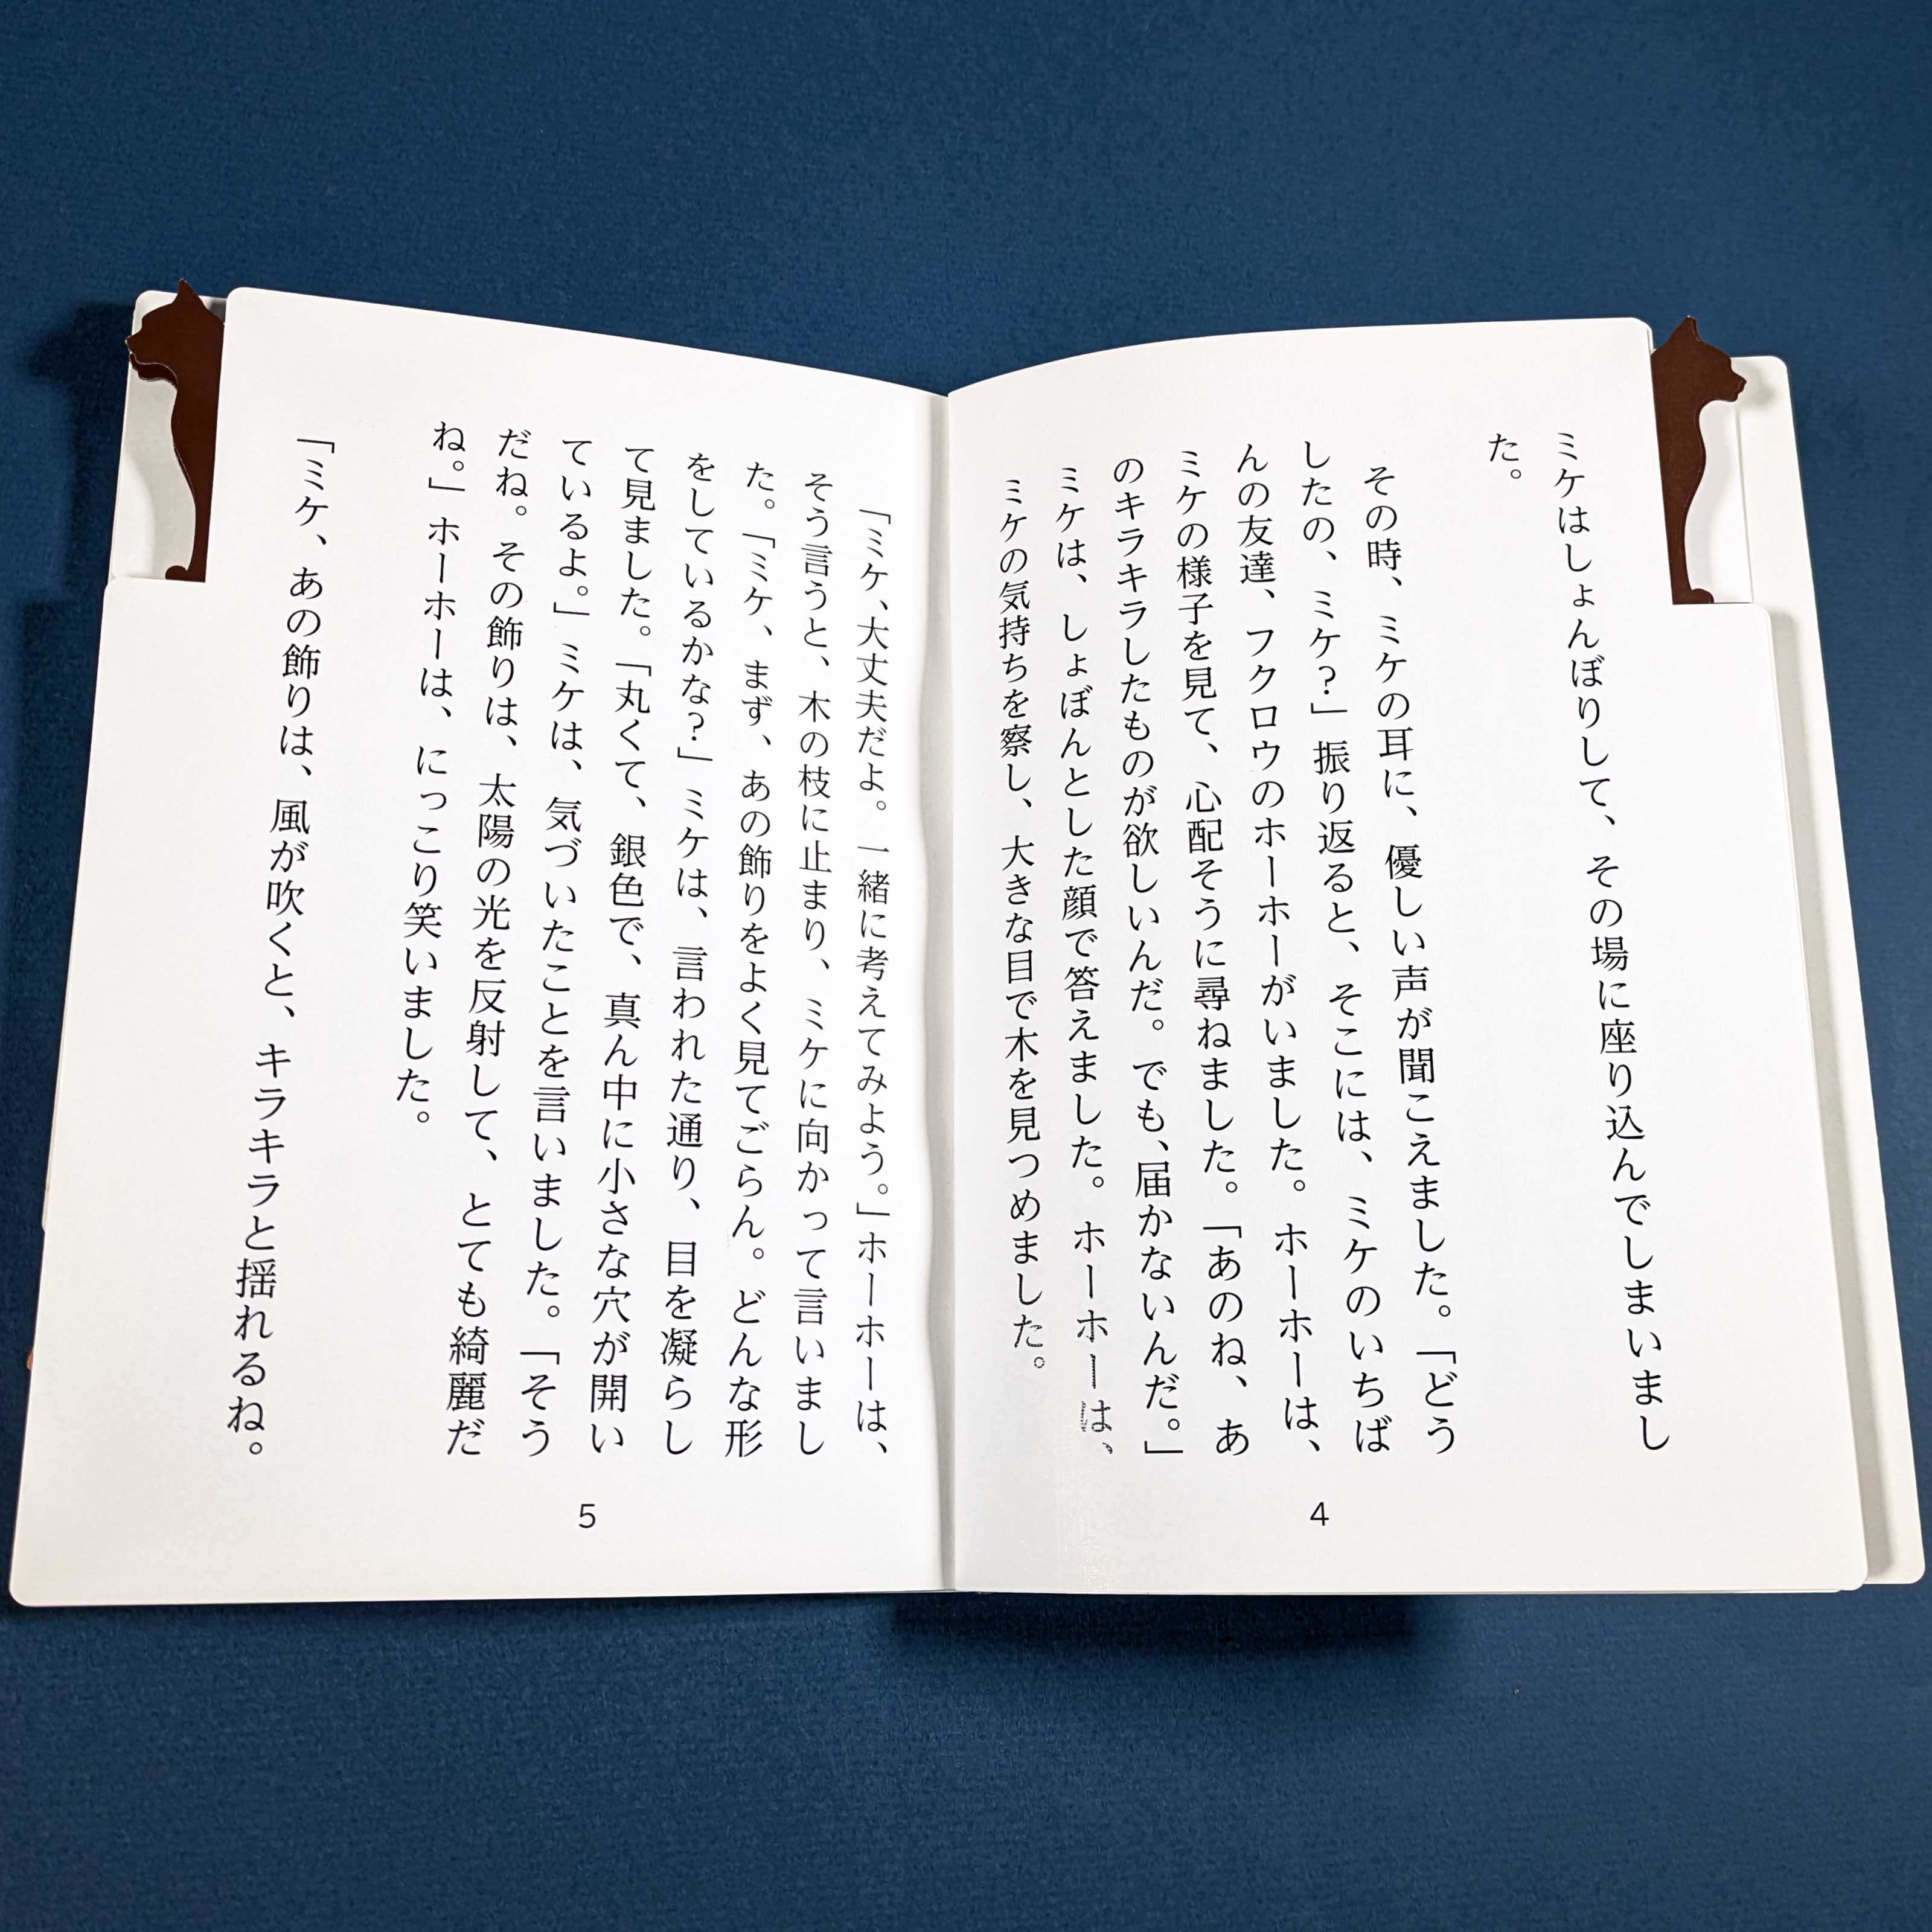 ミケはしょんぼりして、その場に座り込んでしまいまし
た。
その時、ミケの耳に、優しい声が聞こえました。「どう
したの、ミケ？」振り返ると、そこには、ミケのいちば
んの友達、フクロウのホーホーがいました。ホーホーは、
ミケの様子を見て、心配そうに尋ねました。「あのね、あ
のキラキラしたものが欲しいんだ。でも、届かないんだ。」
ミケは、しょぼんとした顔で答えました。ホーホーは、
ミケの気持ちを察し、大きな目で木を見つめました。
4
「ミケ、大丈夫だよ。一緒に考えてみよう。」ホーホーは、
そう言うと、木の枝に止まり、ミケに向かって言いまし
た。「ミケ、まず、あの飾りをよく見てごらん。どんな形
をしているかな？」ミケは、言われた通り、目を凝らし
て見ました。「丸くて、銀色で、真ん中に小さな穴が開い
ているよ。」ミケは、気づいたことを言いました。「そう
だね。その飾りは、太陽の光を反射して、とても綺麗だ
ね。」ホーホーは、にっこり笑いました。
「ミケ、あの飾りは、風が吹くと、キラキラと揺れるね。
5